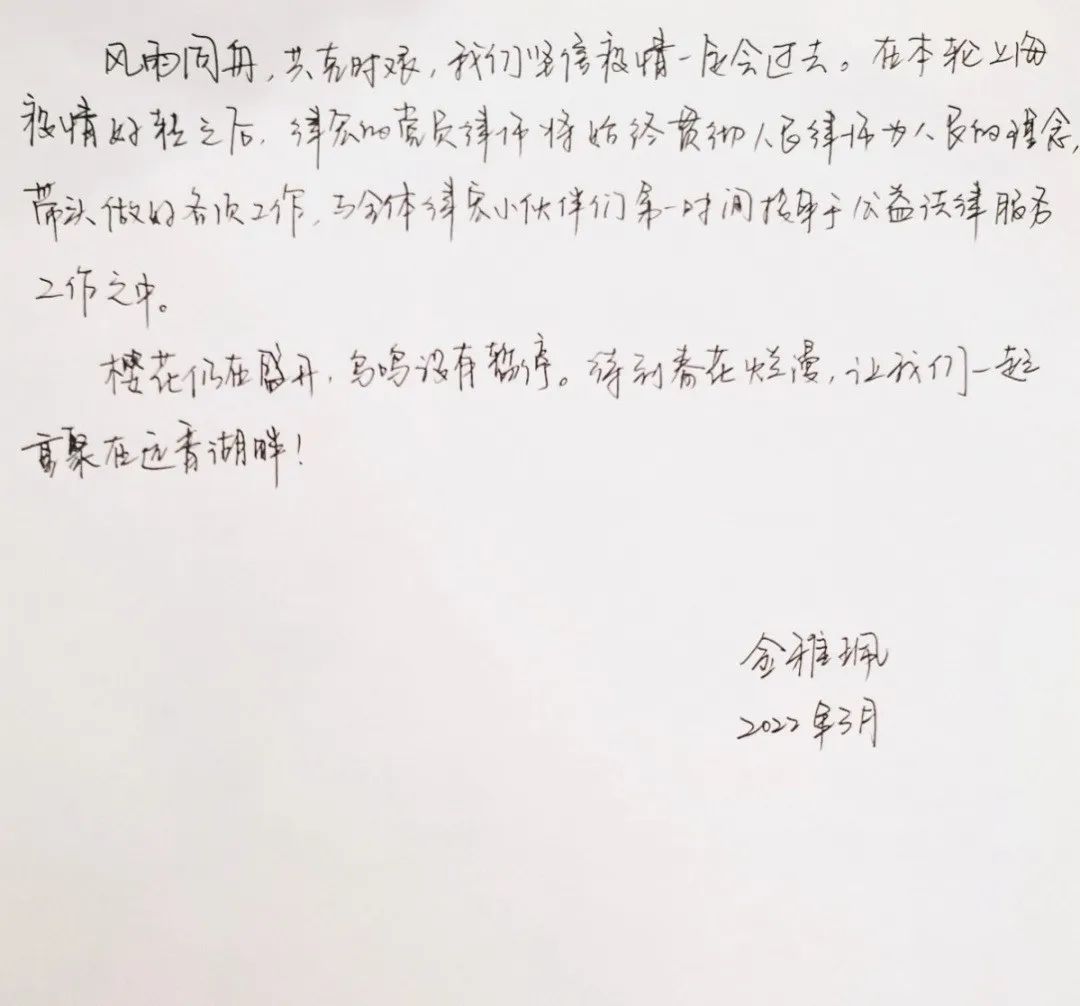 风雨同舟，共克时艰，我们坚信疫情一定会过去。在本轮上海
疫情好转之后，律宏的党员律师将始终贯彻人民律师为人民的理念，
带头做好各项工作，与全体律宏小伙伴们第一时间投身于公益法律服务
工作之中。
樱花仍在盛开，鸟鸣没有暂停。待到春花烂漫，让我们一起
高聚在远香湖畔！
金雅珮
2022年3月